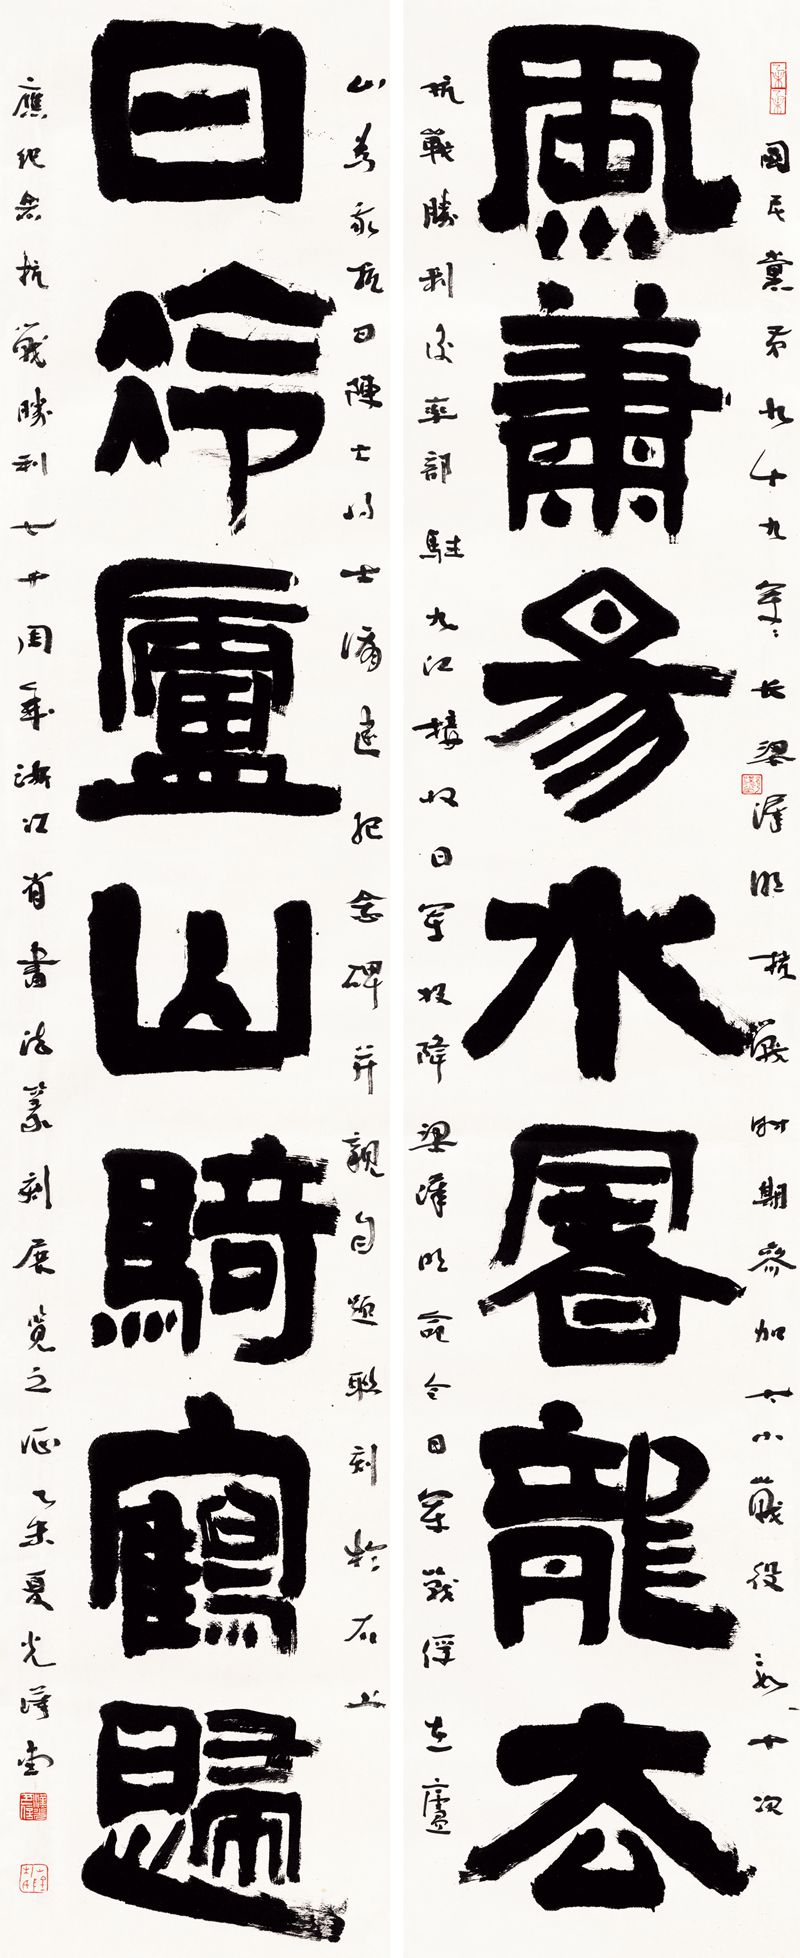 國民黨第九十九軍軍長梁漢明抗戰時期參加大小戰役數十次
風蕭易水屠龍去
抗戰勝利後率部駐九江接收日軍投降梁漢明命令日軍戰俘在廬
山為我抗日陣亡將士修建紀念碑并親自題聯刻於石上
日冷廬山騎鶴歸
應紀念抗戰勝利七十周年浙江省書法篆刻展覽之征乙未夏光漢